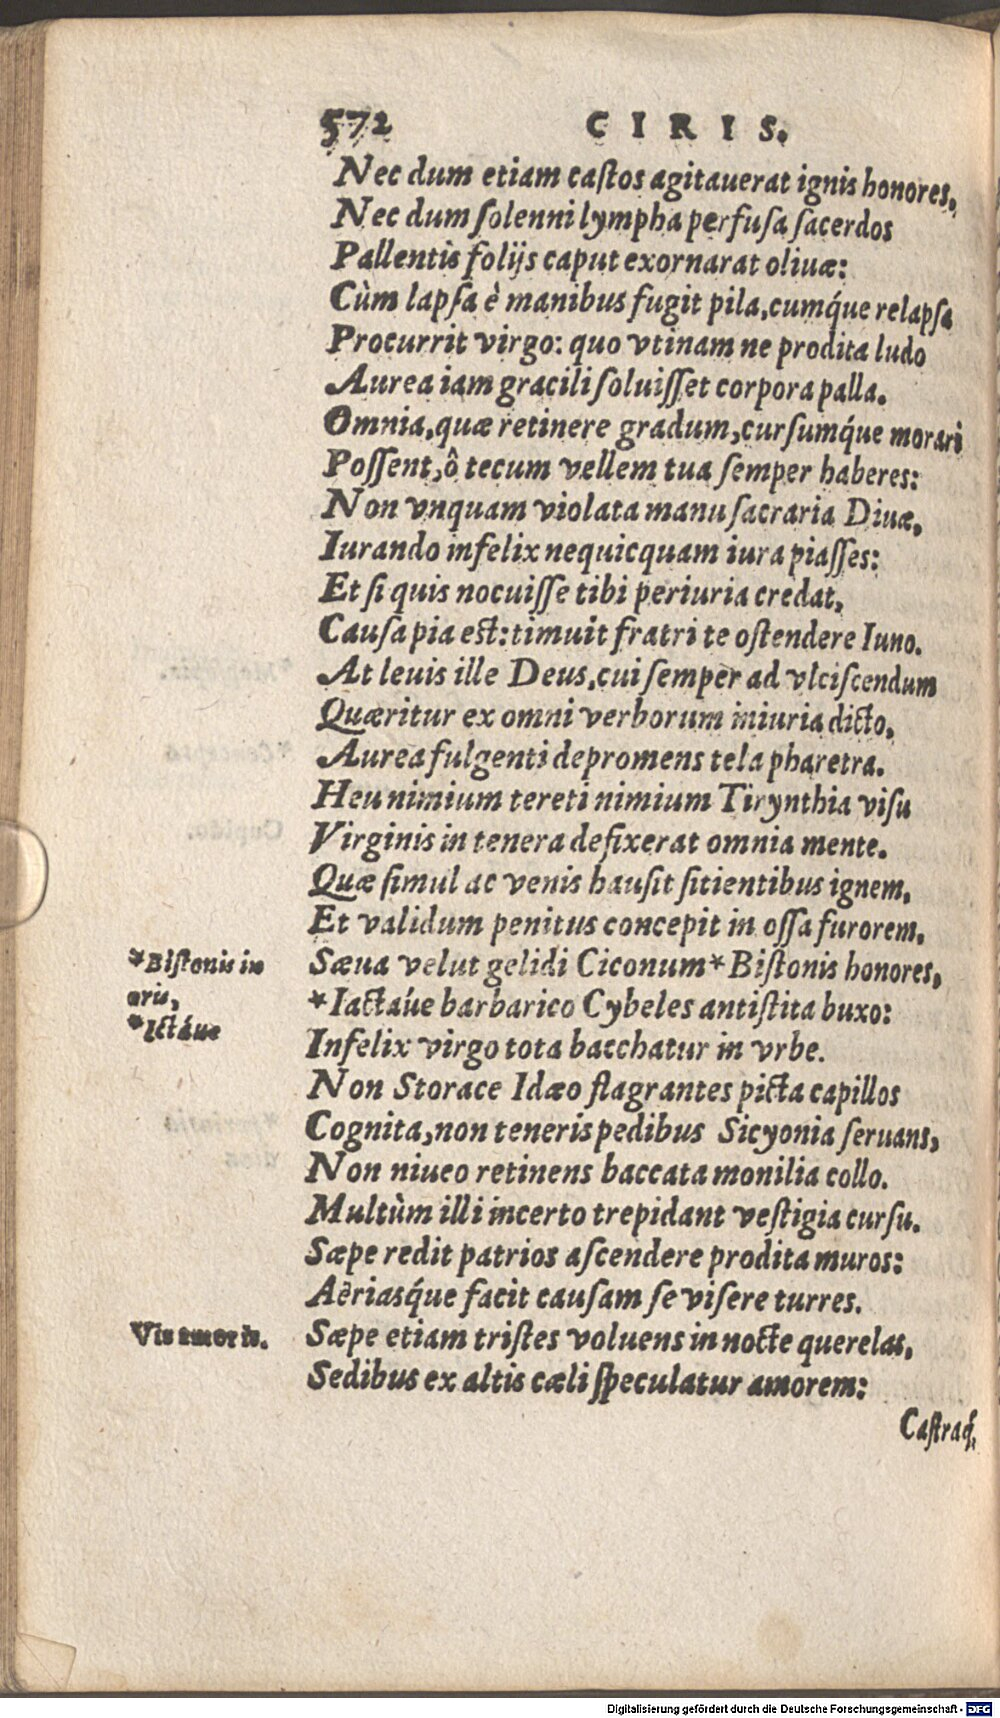 572 CIRIS.
Nec dum etiam castos agitauerat ignis honores,
Nec dum solenni lympha perfusa sacerdos
Pallentis folijs caput exornarat oliuæ:
Cùm lapsa è manibus fugit pila, cumq́ue relapsa
Procurrit virgo: quo vtinam ne prodita ludo
Aurea iam gracili soluisset corpora palla.
Omnia, quæ retinere gradum, cursumq́ue morari
Possent, ô tecum vellem tua semper haberes:
Non vnquam violata manu sacraria Diuæ,
Iurando infelix nequicquam iura piasses:
Et si quis nocuisse tibi periuria credat,
Causa pia est: timuit fratri te ostendere Iuno.
At leuis ille Deus, cui semper ad vlciscendum
Quæritur ex omni verborum iniuria dicto,
Aurea fulgenti depromens tela pharetra.
Heu nimium tereti nimium Tirynthia visu
Virginis in tenera defixerat omnia mente.
Quæ simul ac venis hausit sitientibus ignem,
Et validum penitus concepit in ossa furorem,
*Bistonis in oris, Sæua velut gelidi Ciconum *Bistonis honores,
*Ictáue *Iactáue barbarico Cybeles antistita buxo:
Infelix virgo tota bacchatur in vrbe.
Non Storace Idæo flagrantes picta capillos
Cognita, non teneris pedibus Sicyonia seruans,
Non niueo retinens baccata monilia collo.
Multùm illi incerto trepidant vestigia cursu.
Sæpe redit patrios ascendere prodita muros:
Aëriasq́ue facit causam se visere turres.
Vis amoris. Sæpe etiam tristes voluens in nocte querelas,
Sedibus ex altis cæli speculatur amorem:
Castraq́;
Digitalisierung gefördert durch die Deutsche Forschungsgemeinschaft - DFG